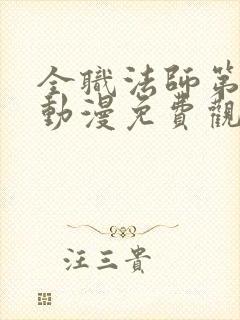 全職法師第
動漫免費觀
汪三貴